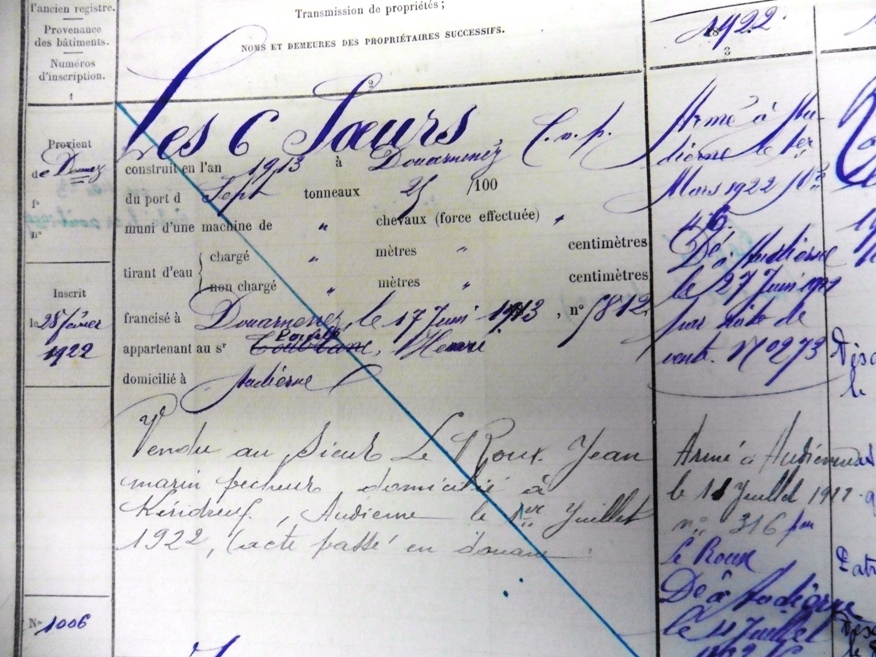 l'ancien registre.
Provenance
des bâtiments.
Numéros
d'inscription.
1
Transmission de propriétés ;
NOMS ET DEMEURES DES PROPRIÉTAIRES SUCCESSIFS.
2
1922
3
Provient
de Dnenez
f°
n°
Inscrit
le 28 février
1922
N° 1006
Les 6 Sœurs,
construit en l'an 1913 à Douarnenez
du port d Sept tonneaux 25 /100
muni d'une machine de " chevaux (force effectuée) "
tirant d'eau { chargé " mètres " centimètres
non chargé " mètres " centimètres
francisé à Douarnenez, le 17 Juin 1913, n° 5812
appartenant au sr Henri
domicilié à Audierne
Vendu au Sieur Le Roux Jean
marin pecheur domicilié à
Audierne le 1er Juillet
1922, l'acte passé en douane
Armé à Au-
dierne le 1er
Mars 1922
46
Dé à Audierne
le 27 Juin 1922
par suite de
vente. N° 273
Armé à Audierne
le 11 Juillet 1922
n° 316 par
Le Roux
Dé à Audierne
le 11 Juillet